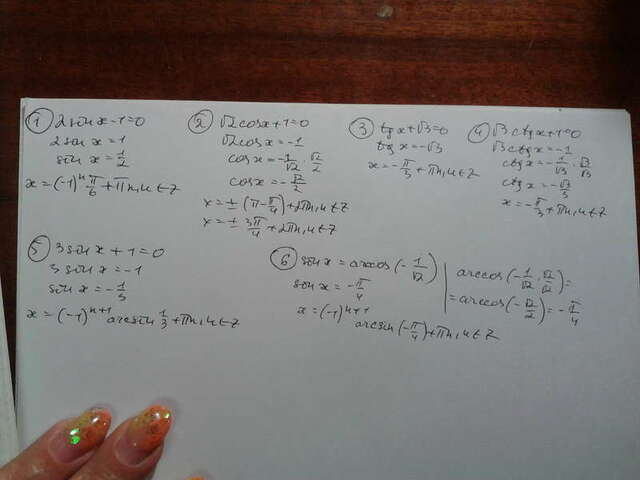 ① 2sin x - 1 = 0
2 sin x = 1
sin x = 1/2
x = (-1)^n π/6 + πn, n ∈ Z
② √2 cos x + 1 = 0
√2 cos x = -1
cos x = -1/√2 · √2/√2
cos x = -√2/2
x = ± (π - π/4) + 2πn, n ∈ Z
x = ± 3π/4 + 2πn, n ∈ Z
③ tg x + √3 = 0
tg x = -√3
x = -π/3 + πn, n ∈ Z
④ √3 ctg x + 1 = 0
√3 ctg x = -1
ctg x = -1/√3 · √3/√3
ctg x = -√3/3
x = -π/3 + πn, n ∈ Z
⑤ 3 sin x + 1 = 0
3 sin x = -1
sin x = -1/3
x = (-1)^{n+1} arcsin 1/3 + πn, n ∈ Z
⑥ sin x = arccos (-1/√2)
sin x = -π/4
x = (-1)^{n+1}
arcsin (-π/4) + πn, n ∈ Z
arccos (-1/√2 · √2/√2) =
= arccos (-√2/2) = -π/4